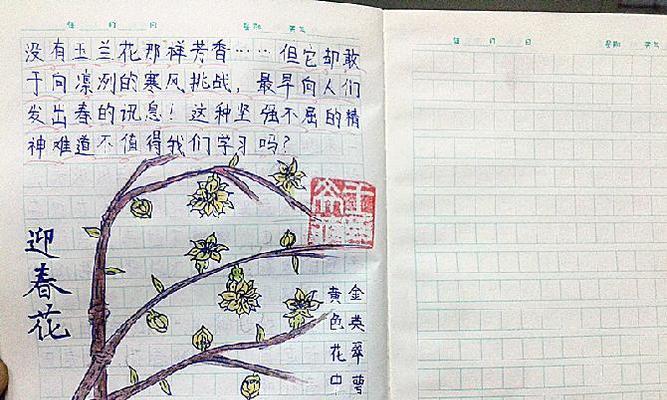 年 月 日 星期 天气
没有玉兰花那样芳香……但它却敢
于向凛冽的寒风挑战，最早向人们
发出春的讯息！这种坚强不屈的精
神难道不值得我们学习吗？
迎春花
金英翠萼
黄色花中
年 月 日 星期 天气